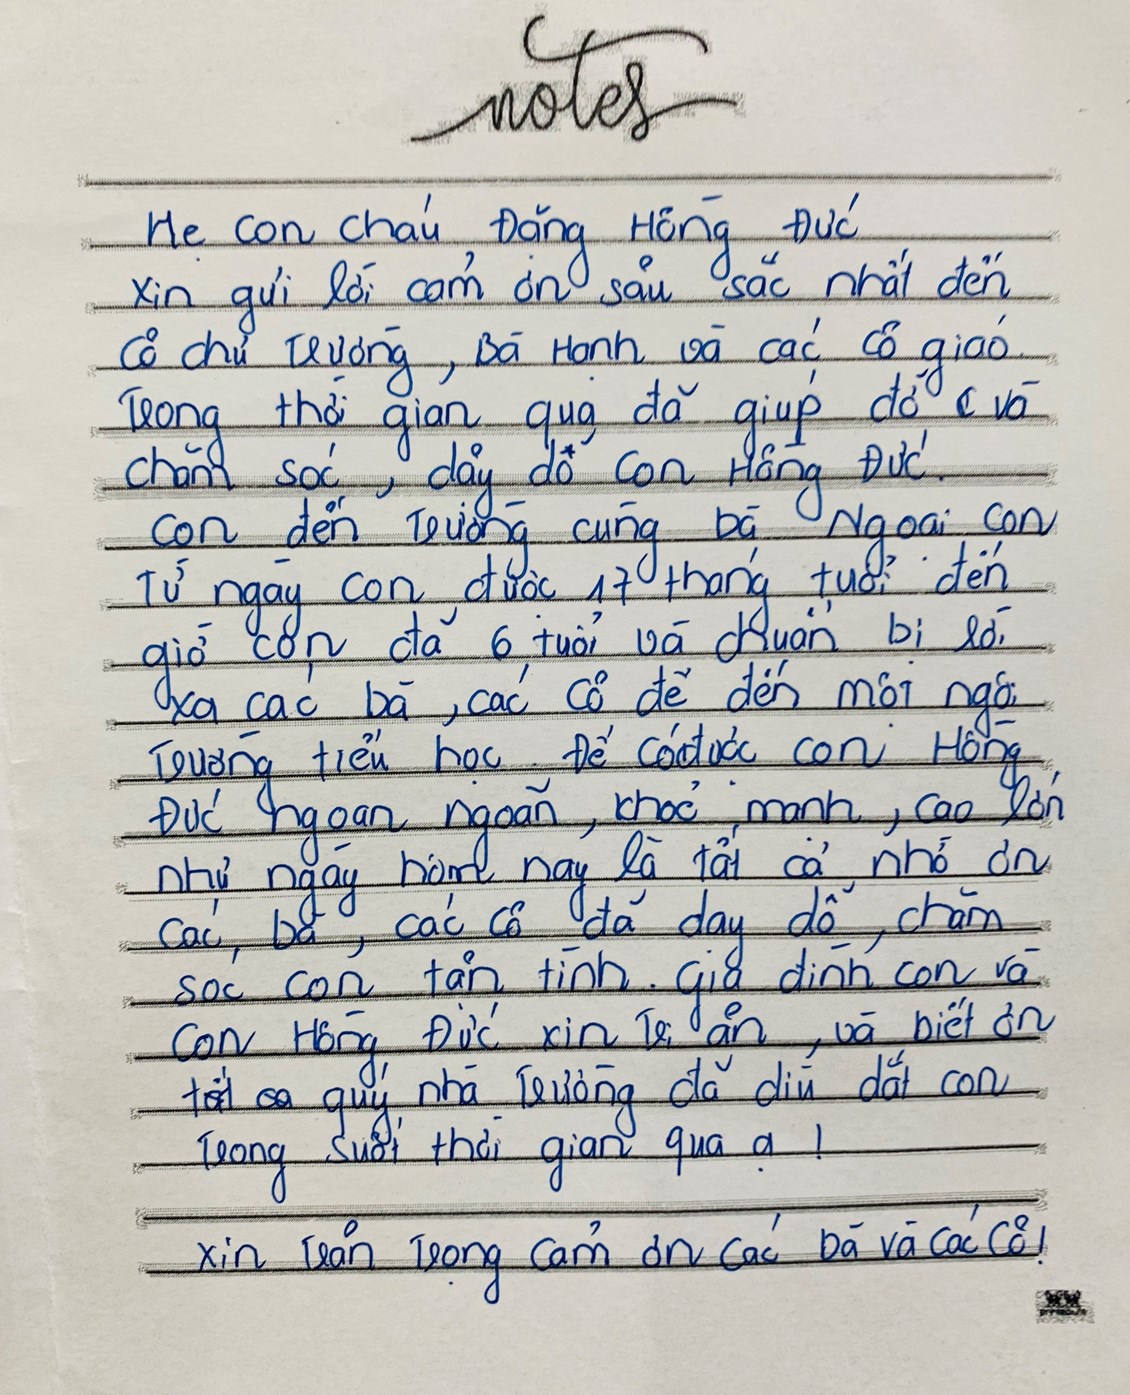 notes
Mẹ con cháu Đặng Hồng Đức
xin gửi lời cảm ơn sâu sắc nhất đến
cô chủ trường, Bà Hạnh và các cô giáo
Trong thời gian qua đã giúp đỡ và
chăm sóc, dạy dỗ con Hồng Đức.
con đến trường cùng bà Ngoại con
Từ ngày con được 17 tháng tuổi đến
giờ con đã 6 tuổi và chuẩn bị rời
xa các bà, các cô để đến môi ngôi
Trường tiểu học. Để có được con Hồng
Đức ngoan ngoãn, khoẻ mạnh, cao lớn
như ngày hôm nay là tất cả nhờ ơn
các bà, các cô đã dạy dỗ, chăm
sóc con tận tình. Gia đình con và
con Hồng Đức xin Tri ân, và biết ơn
tất cả quý nhà Trường đã dìu dắt con
Trong suốt thời gian qua ạ!
xin Trân Trọng cảm ơn các bà và các cô!